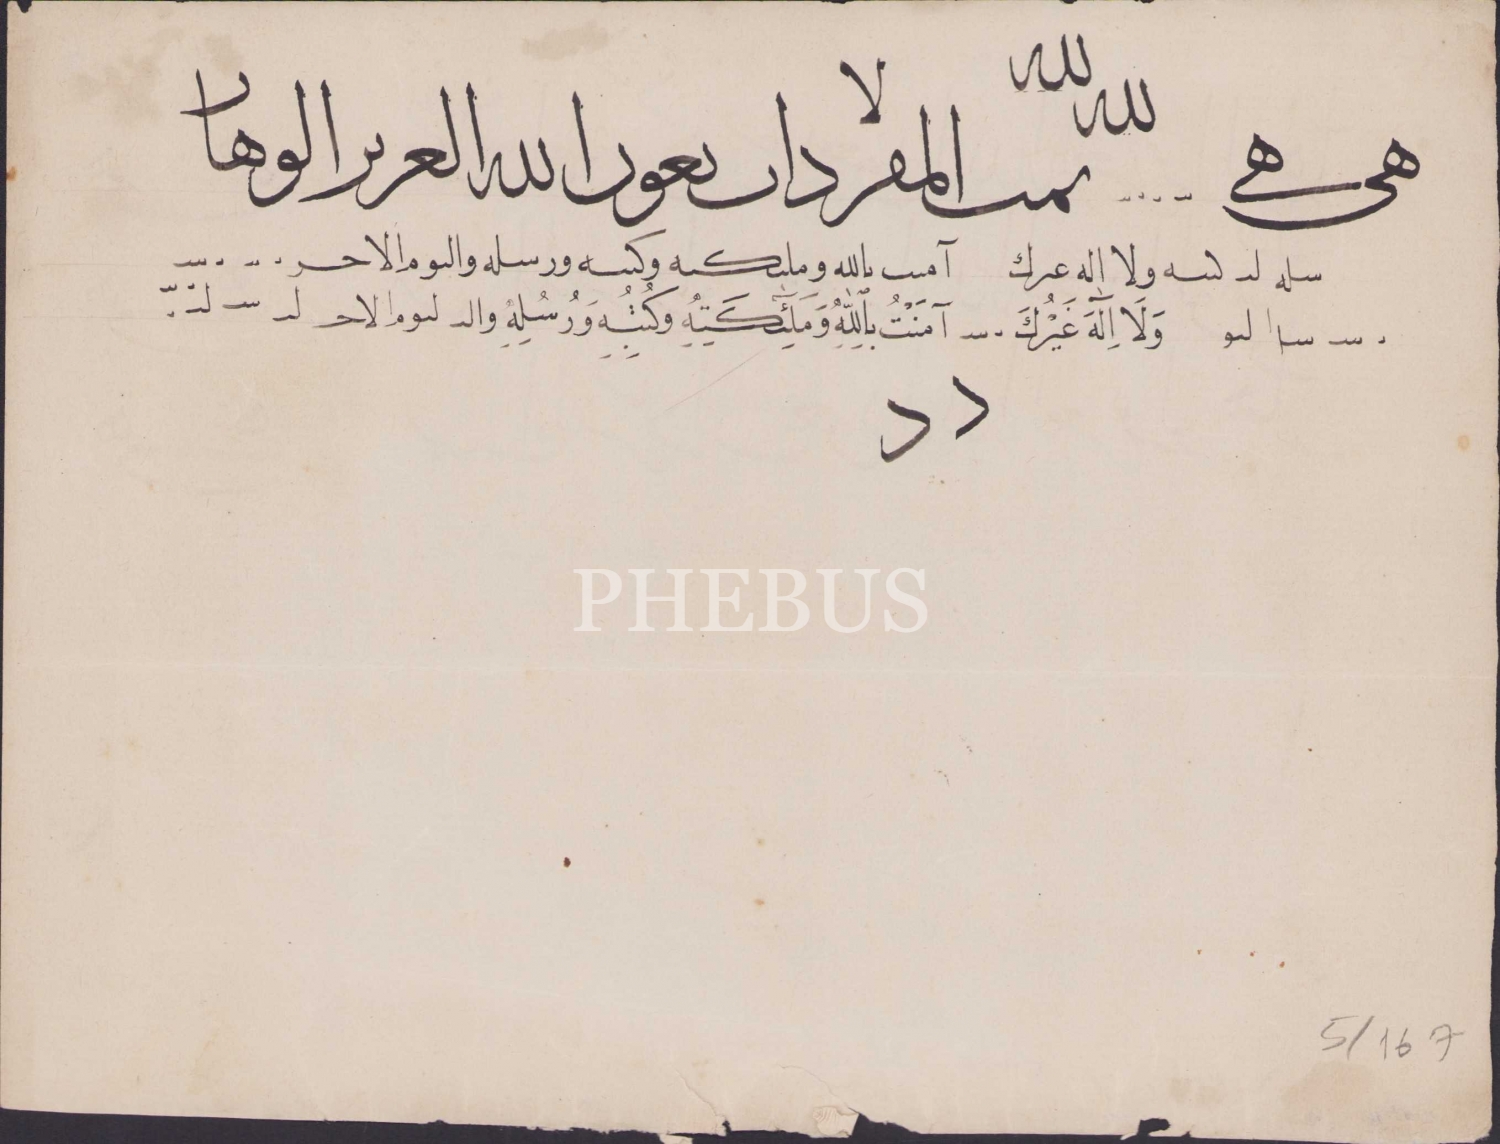 لله
لله لا
هى هى تمت المفردات بعون الله العزيز الوهاب
ولا اله غيرك آمنت بالله وملئكته وكتبه ورسله واليوم الاخر
وَلَا اِلٰهَ غَيْرُكَ آمَنْتُ بِاللّٰهِ وَمَلٰئِكَتِهِ وَكُتُبِهِ وَرُسُلِهِ واليوم الاخر
د د
PHEBUS
5/167